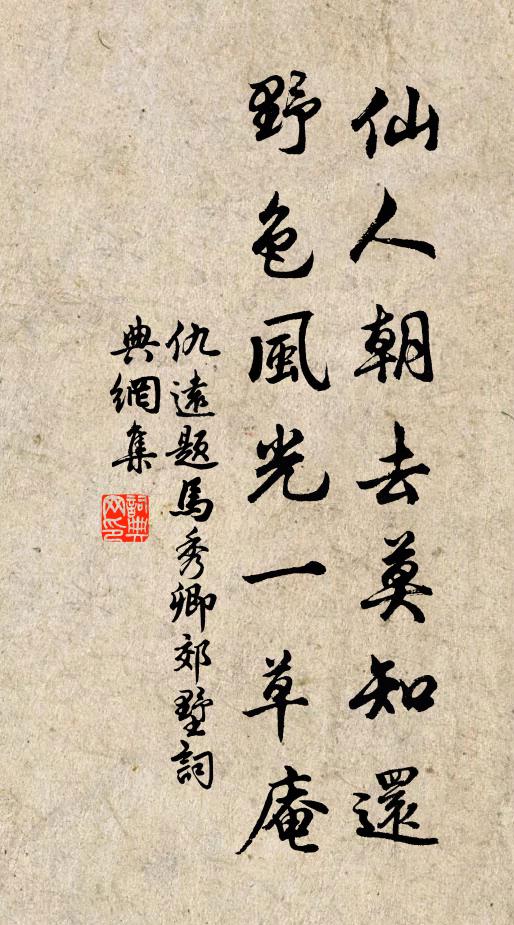 仙人朝去莫知還
野色風光一草庵
仇遠題馬秀卿郊墅詞
典網集
詞典网印